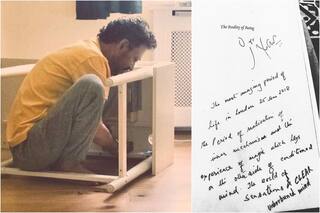 The Reality of Being
The most amazing period of
life in London 25 Jun 2018
The Period of realization of
inner mechanism and the
experience of magic which lays
on the other side of conditioned
mind. The world of
sensations or
unbotherd mind